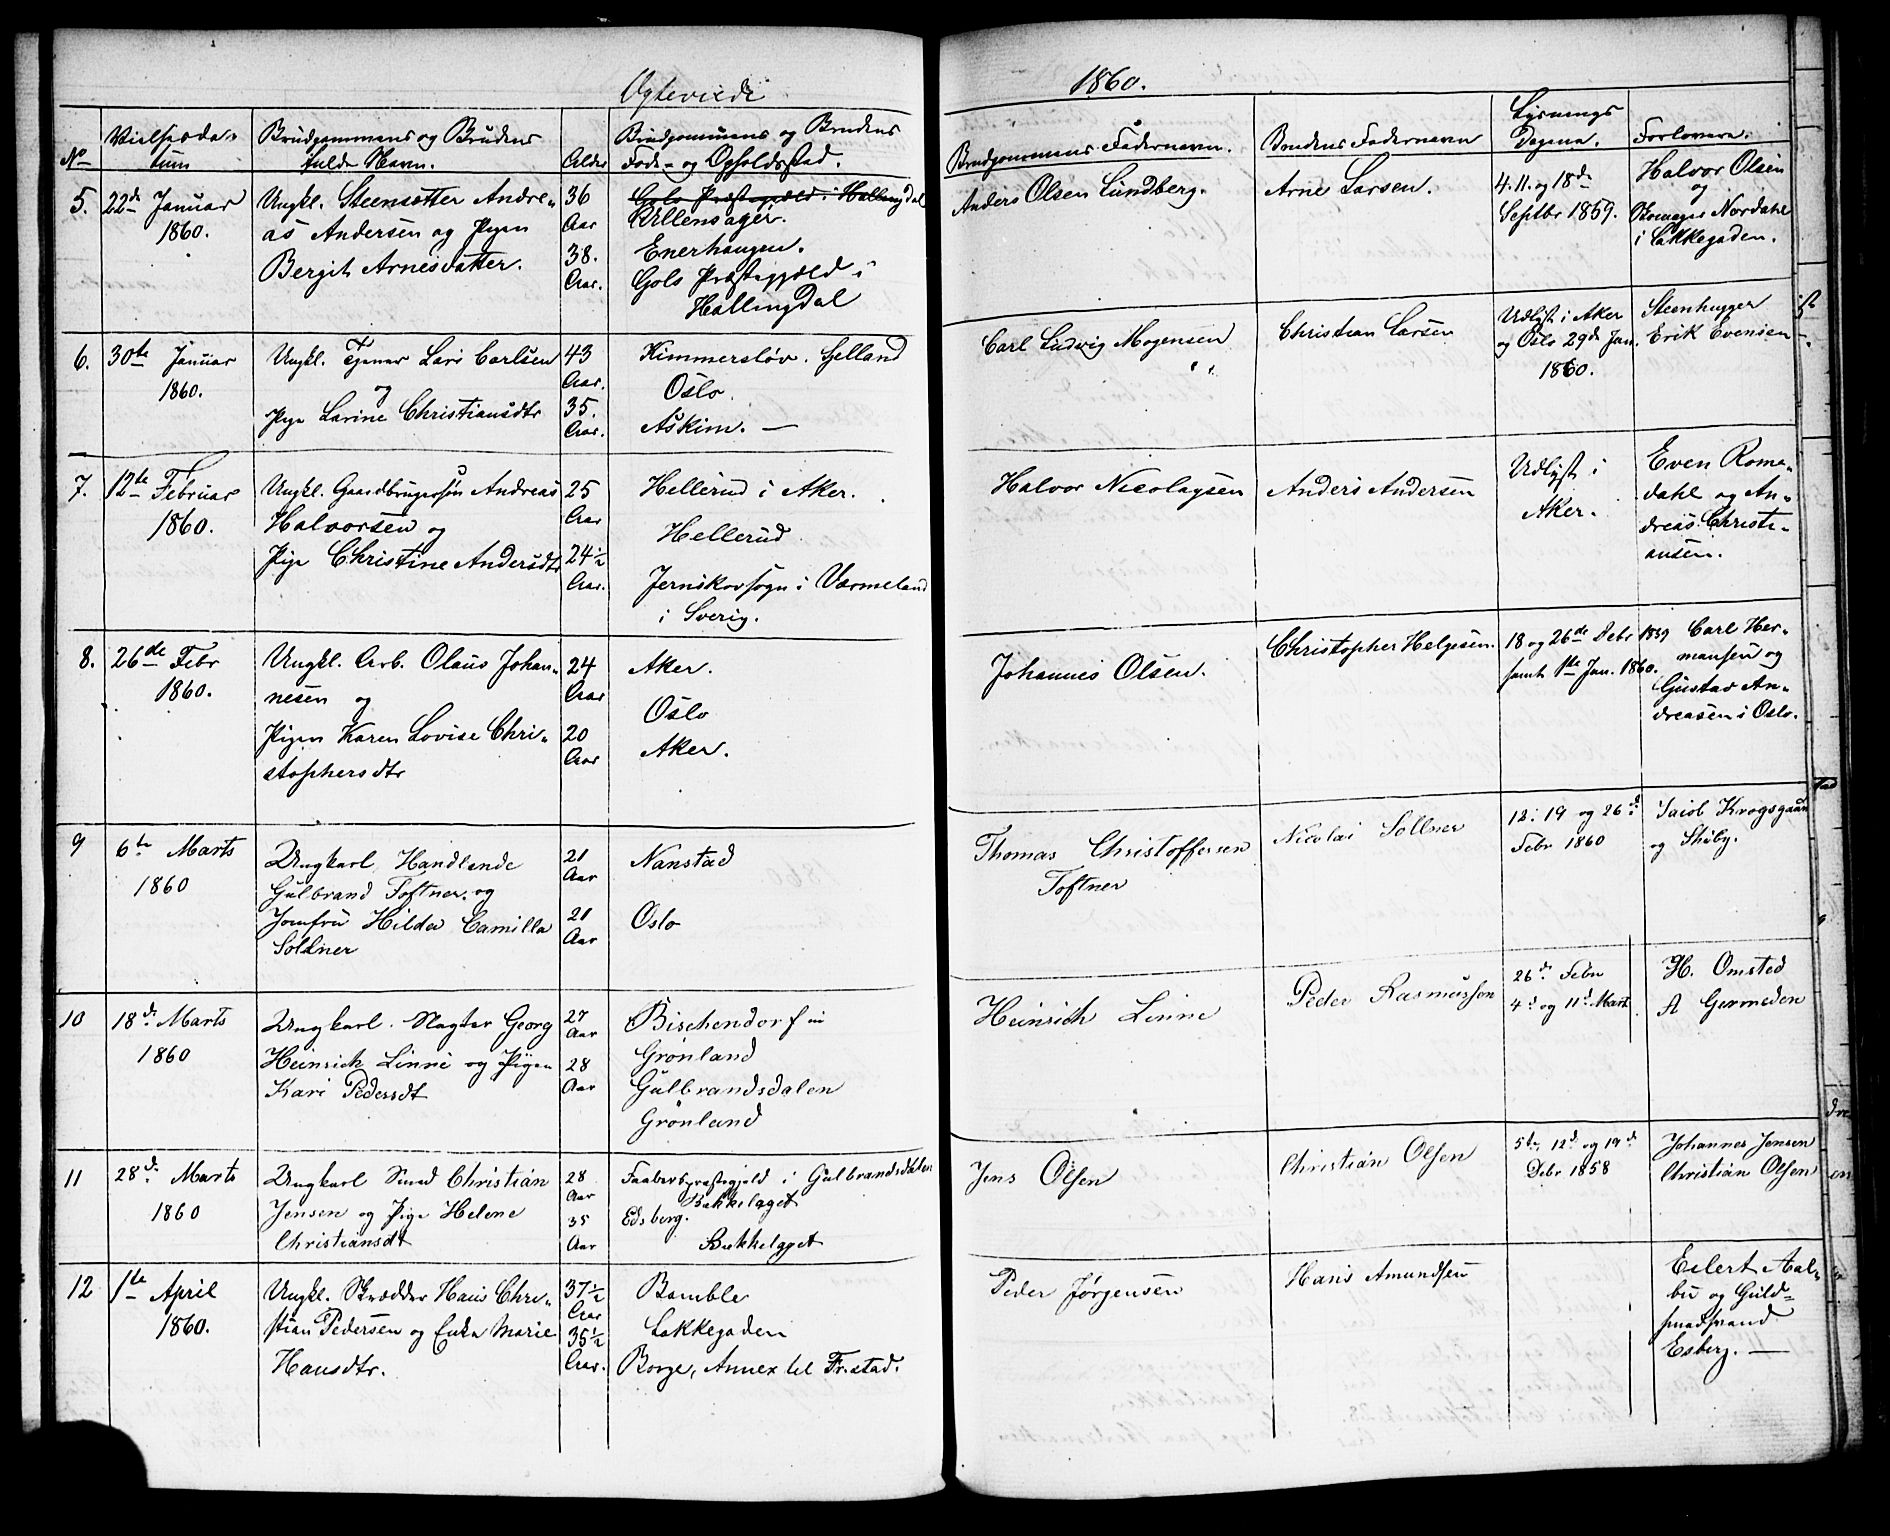 Egteviede 1860.
No
Vielsesda-
tum
Brudgommens og Brudens
fulde Navn.
Alder
Brudgommens og Brudens
Føde- og Opholdsstad.
Brudgommens Fadernavn.
Brudens Fadernavn
Lysnings
Dagene.
Forlovere.
5. 22de Januar
1860.
Ungkl. Steensætter Andre-
as Andersen og Pigen
Bergit Arnesdatter.
36
Aar
38.
Aar.
Gols Præstegjæld i Hallingdal
Ullensager.
Enerhaugen.
Gols Præstegjæld i
Hallingdal
Anders Olsen Lundberg.
Arne Larsen.
4. 11. og 18de
Septbr 1859.
Halvor Olsen
og
Skomager Nordahl
i Lakkegaden.
6. 30te Januar
1860.
Ungkl. Tjener Lars Carlsen
og
Pige Larine Christiansdtr
43
Aar.
35.
Aar.
Kimmersløv. Sjelland
Oslo.
Askim. —
Carl Ludvig Mogensen
Christian Larsen
Udlyst i Aker
og Oslo 29de Jan.
1860.
Steenhugger
Erik Evensen
7. 12te Februar
1860.
Ungkl. Gaardbrugersøn Andreas
Halvorsen og
Pige Christine Andersdtr
25
Aar
24½
Aar.
Hellerud i Aker.
Hellerud
Jernskovsogn i Værmeland
i Sverig.
Halvor Nicolaysen
Anders Andersen
Udlyst i
Aker.
Even Rome-
dahl og An-
dreas Christi-
ansen.
8. 26de Febr
1860.
Ungkl. Arb. Olaus Johan-
nesen og
Pigen Karen Lovise Chri-
stophersdtr
24
Aar
20
Aar
Aker.
Oslo
Aker.
Johannes Olsen.
Christopher Helgesen.
18 og 26de Debr 1859
samt 1ste Jan. 1860.
Carl Her-
mansen og
Gustav An-
dreasen i Oslo.
9 6te Marts
1860
Ungkarl Handlende
Gulbrand Toftner og
Jomfru Hilda Camilla
Soldner
21
Aar
21
Aar
Nanstad
Oslo
Thomas Christoffersen
Toftner
Nicolai Sollner
12. 19 og 26d
Febr 1860
Jacob Krogsgaard
og Thoby.
10 18d Marts
1860
Ungkarl. Slagter Georg
Heinrich Linne og Pigen
Kari Pedersdt
27
Aar
28
Aar
Bischendorf in
Grønland
Gulbrandsdalen
Grønland
Heinrich Linne
Peder Rasmussen
26d Febr
4d og 11d Mart
H. Omsted
A Germeden
11 28d Marts
1860
Ungkarl Smed Christian
Jensen og Pige Helene
Christiansdt
28
Aar
35
Aar
Faabergpræstegjeld i Gulbrandsdalen
Bækkelaget
Edsberg.
Bækkelaget
Jens Olsen
Christian Olsen
5te, 12d og 19d
Debr 1858
Johannes Jensen
Christian Olsen
12 1ste April
1860.
Ungkl. Skrædder Hans Chri-
stian Pedersen og Enka Marie
Hansdtr.
37½
Aar
35½
Aar.
Bamble
Lakkegaden
Borge, Annex til Fr.stad.
Peder Jørgensen
Hans Amundsen
Eilert Aal-
bu og Guld-
smadsvand
Esberg. —